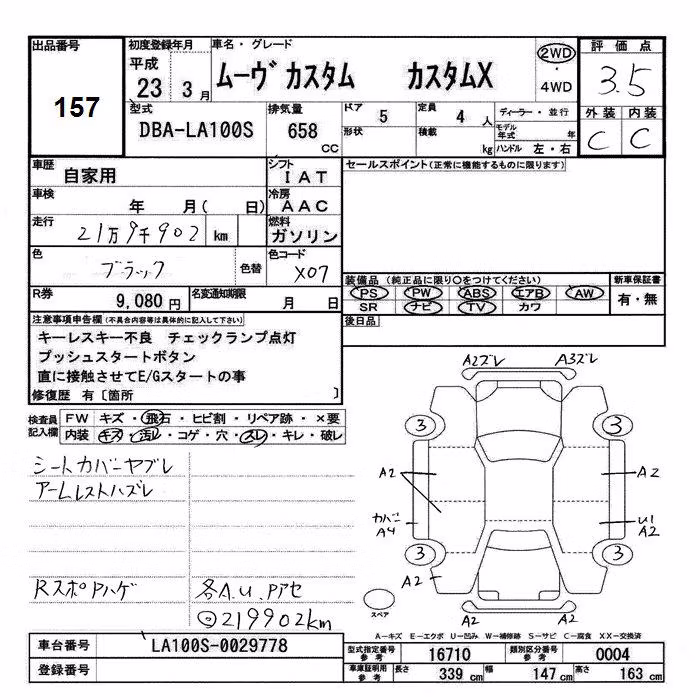 出品番号 初度登録年月 車名・グレード 2WD 評価点
157 平成 23 3月 ムーヴ カスタム カスタムX ・ 3.5
4WD
型式 排気量 ドア 5 定員 4人 ディーラー・並行 外装 内装
DBA-LA100S 658 cc 形状 積載 kg モデル年式 年 C C
ハンドル 左・右
車歴 自家用 シフト IAT セールスポイント(正常に機能するものに限ります)
車検 年 月( 日) 冷房 AAC
走行 21万9千902 km 燃料 ガソリン
色 ブラック 色替 色コード X07
装備品(純正品に限り○をつけてください) 新車保証書
R券 9,080円 名変通知期限 月 日 PS PW ABS エアB AW 有・無
SR ナビ TV カワ
注意事項申告欄(不具合内容等は具体的に記入して下さい) 後日品
キーレスキー不良 チェックランプ点灯
プッシュスタートボタン
直に接触させてE/Gスタートの事
修復歴 有〔箇所 〕
検査員記入欄 FW キズ・飛石・ヒビ割・リペア跡・×要
内装 キズ・汚レ・コゲ・穴・スレ・キレ・破レ
シートカバーヤブレ
アームレストハズレ
RスポPハゲ 各A.U.Pアセ
⊙219902km
A2ズレ A3ズレ
3 3
A2 A2
カバー A4 U1 A2
3 3
A2 A2
A2 A2
スペア
A-キズ E-エクボ U-凹み W-補修跡 S-サビ C-腐食 XX-交換済
車台番号 LA100S-0029778 型式指定番号 参考 16710 類別区分番号 参考 0004
登録番号 車庫証明用 参考 長さ 339 cm 幅 147 cm 高さ 163 cm